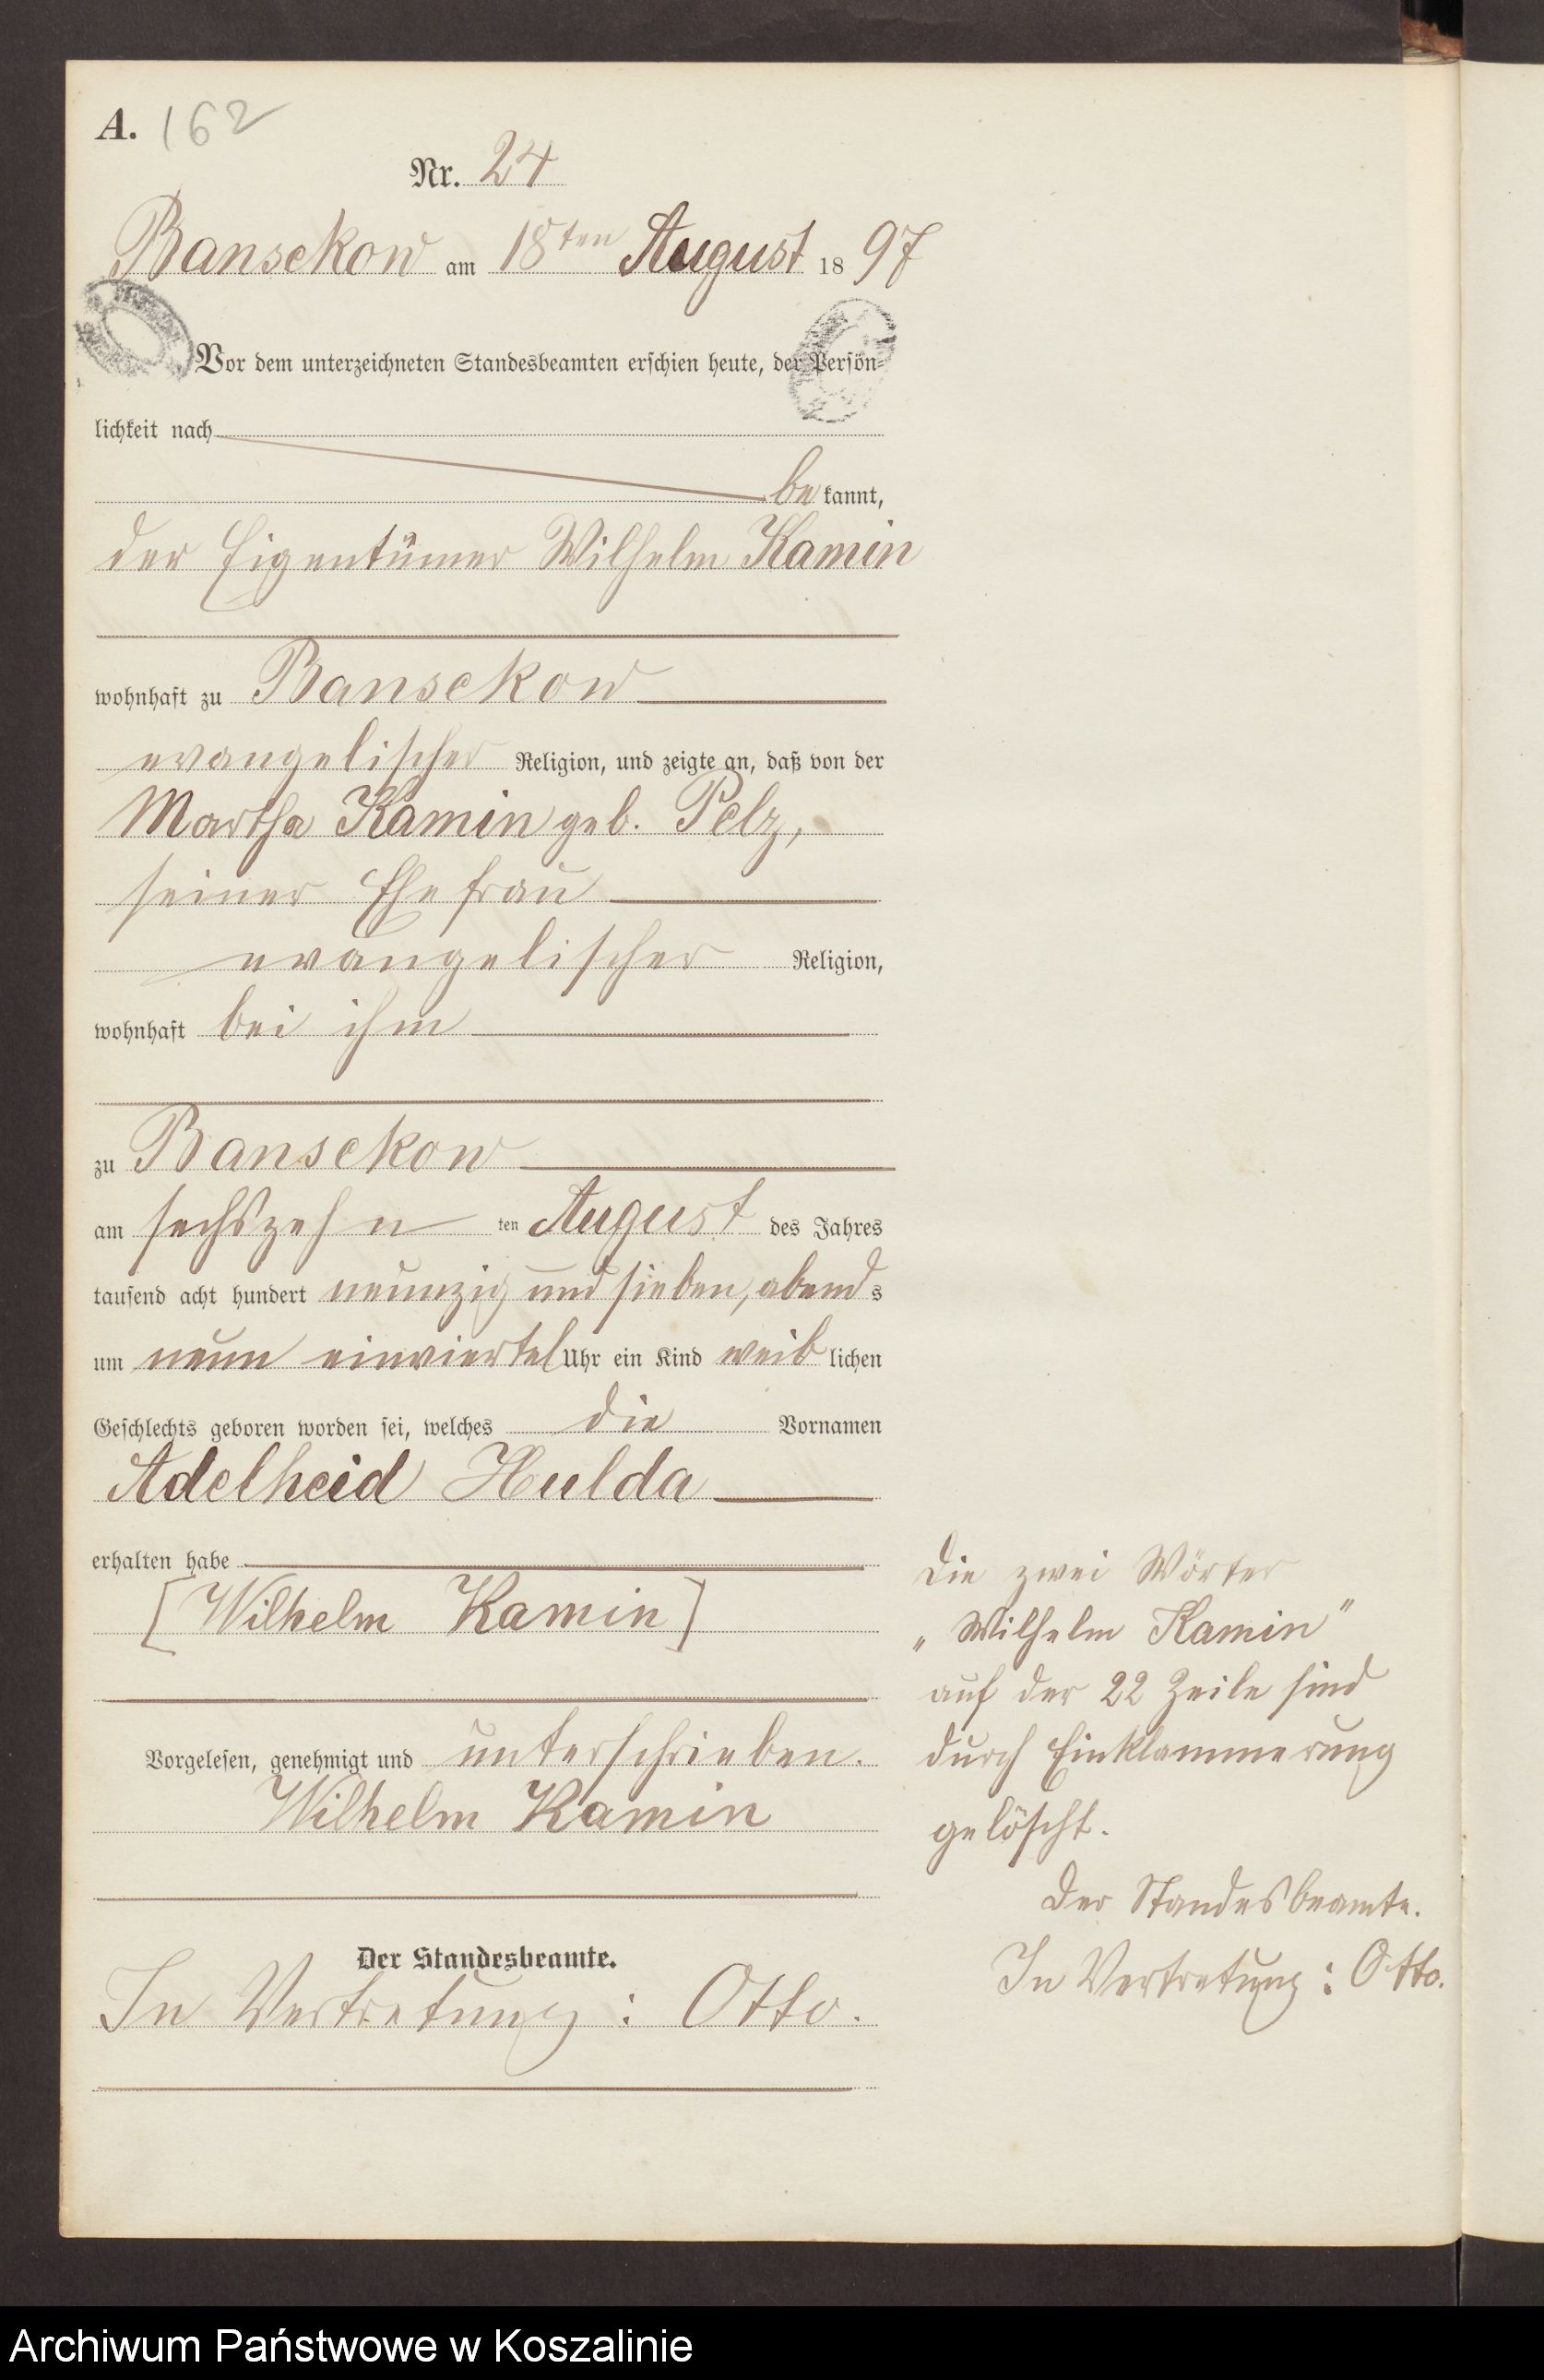 A. 162
Nr. 24
Bansekow am 18ten August 1897
Vor dem unterzeichneten Standesbeamten erschien heute, der Persön-
lichkeit nach
bekannt,
der Eigentümer Wilhelm Kamin
wohnhaft zu Bansekow
evangelischer Religion, und zeigte an, daß von der
Martha Kamin geb. Pelz,
seiner Ehefrau
evangelischer Religion,
wohnhaft bei ihm
zu Bansekow
am sechszehn ten August des Jahres
tausend acht hundert neunzig und sieben, abends
um neun einviertel Uhr ein Kind weiblichen
Geschlechts geboren worden sei, welches die Vornamen
Adelheid Hulda
erhalten habe
[Wilhelm Kamin]
Vorgelesen, genehmigt und unterschrieben.
Wilhelm Kamin
Der Standesbeamte.
In Vertretung: Otto.
Die zwei Wörter
„Wilhelm Kamin"
auf der 22 Zeile sind
durch Einklammerung
gelöscht.
Der Standesbeamte.
In Vertretung: Otto.
Archiwum Państwowe w Koszalinie